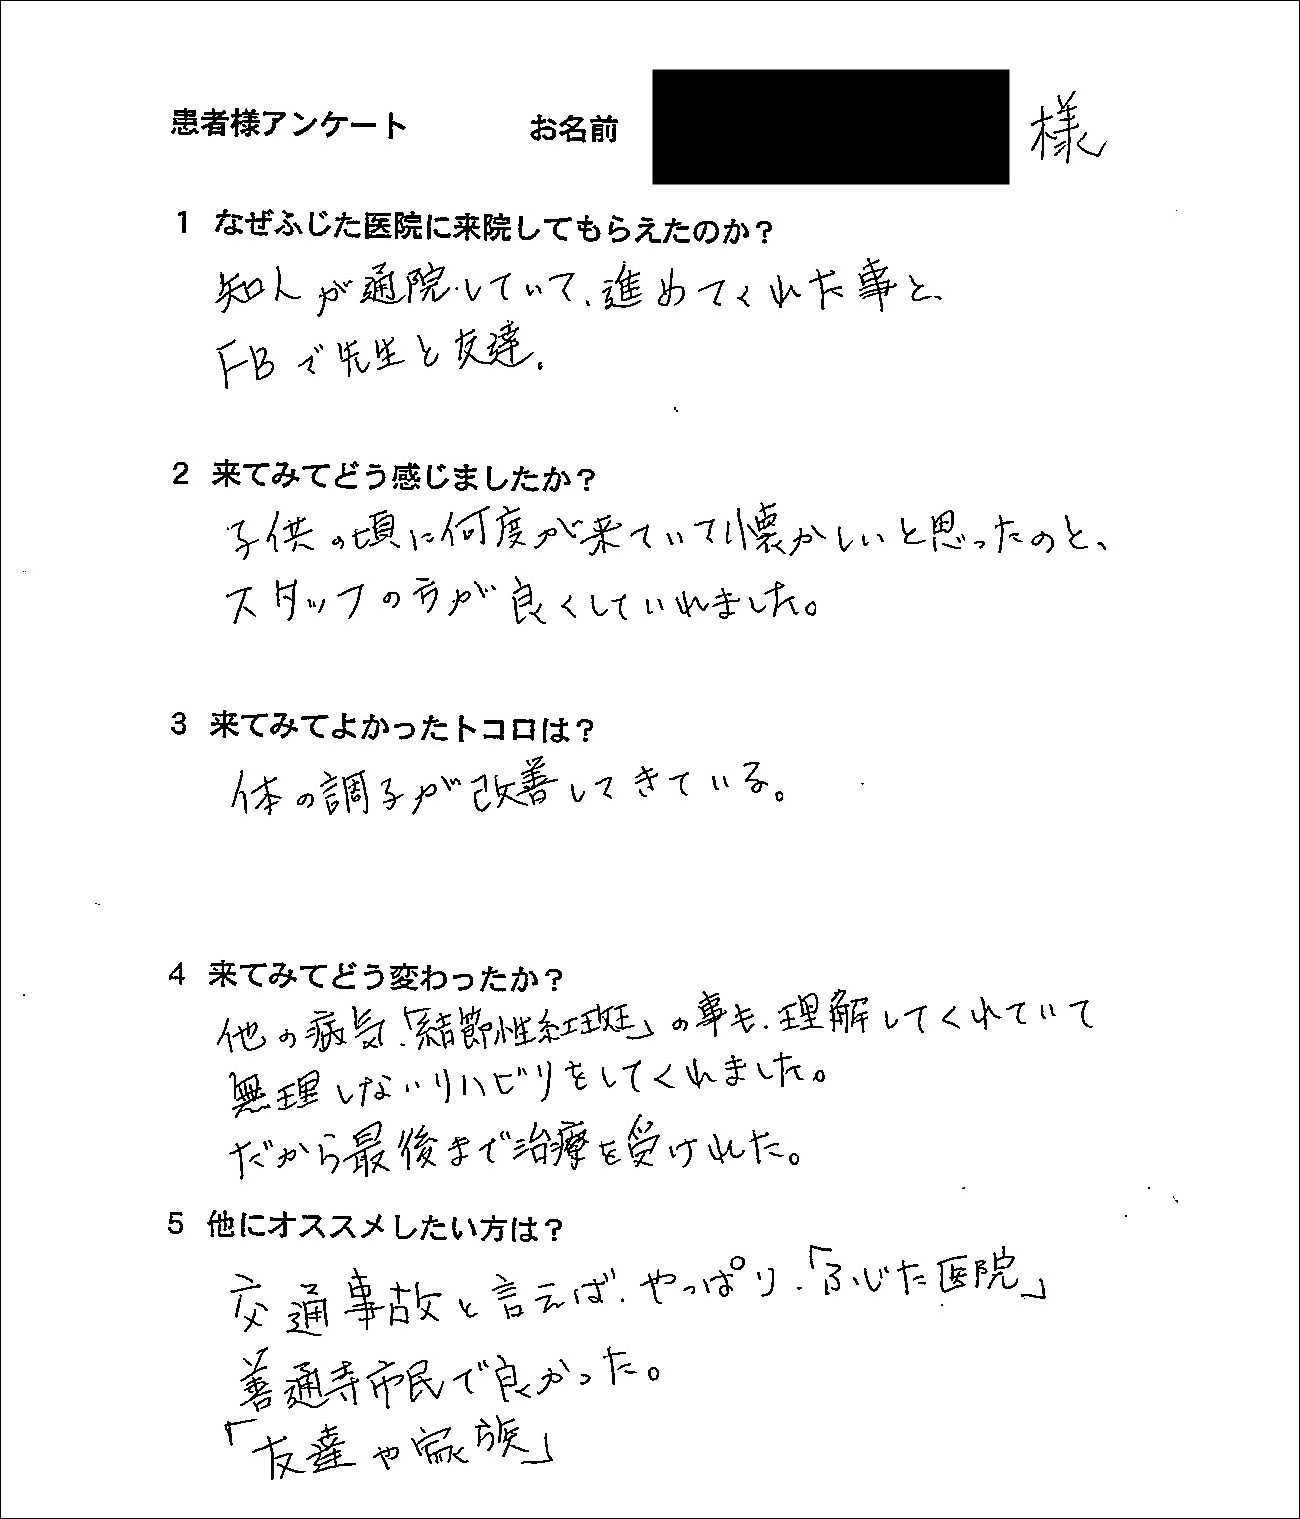 患者様アンケート お名前 様
1 なぜふじた医院に来院してもらえたのか？
知人が通院していて、進めてくれた事と、
FBで先生と友達.
2 来てみてどう感じましたか？
子供の頃に何度か来ていて懐かしいと思ったのと、
スタッフの方が良くしていれました。
3 来てみてよかったトコロは？
体の調子が改善してきている。
4 来てみてどう変わったか？
他の病気.「結節性紅斑」の事も.理解してくれていて
無理しないリハビリをしてくれました。
だから最後まで治療を受けれた。
5 他にオススメしたい方は？
交通事故と言えば.やっぱり.「ふじた医院」
善通寺市民で良かった。
「友達や家族」